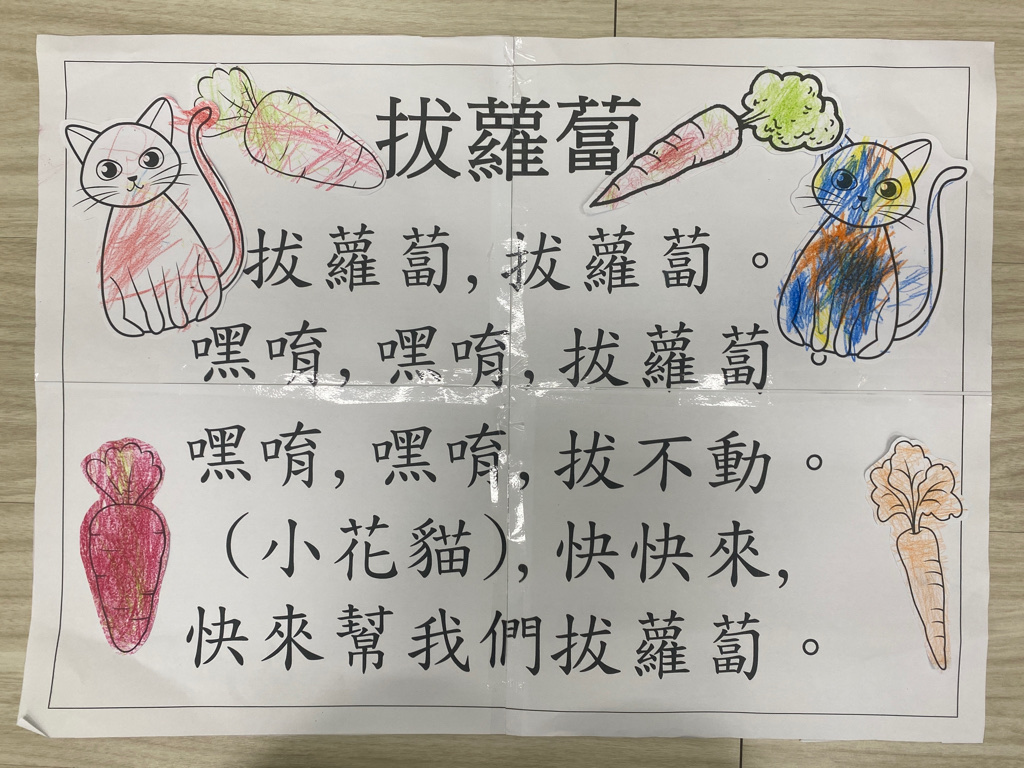 拔蘿蔔
拔蘿蔔,拔蘿蔔。
嘿唷,嘿唷,拔蘿蔔。
嘿唷,嘿唷,拔不動。
(小花貓),快快來,
快來幫我們拔蘿蔔。